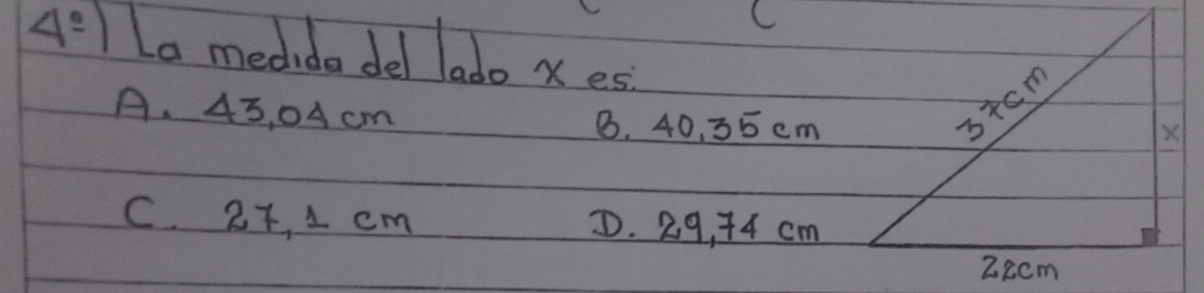 4º) La medida del lado x es:
A. 43,04 cm B. 40,35 cm
C. 27,1 cm D. 29,74 cm
37cm
x
22cm